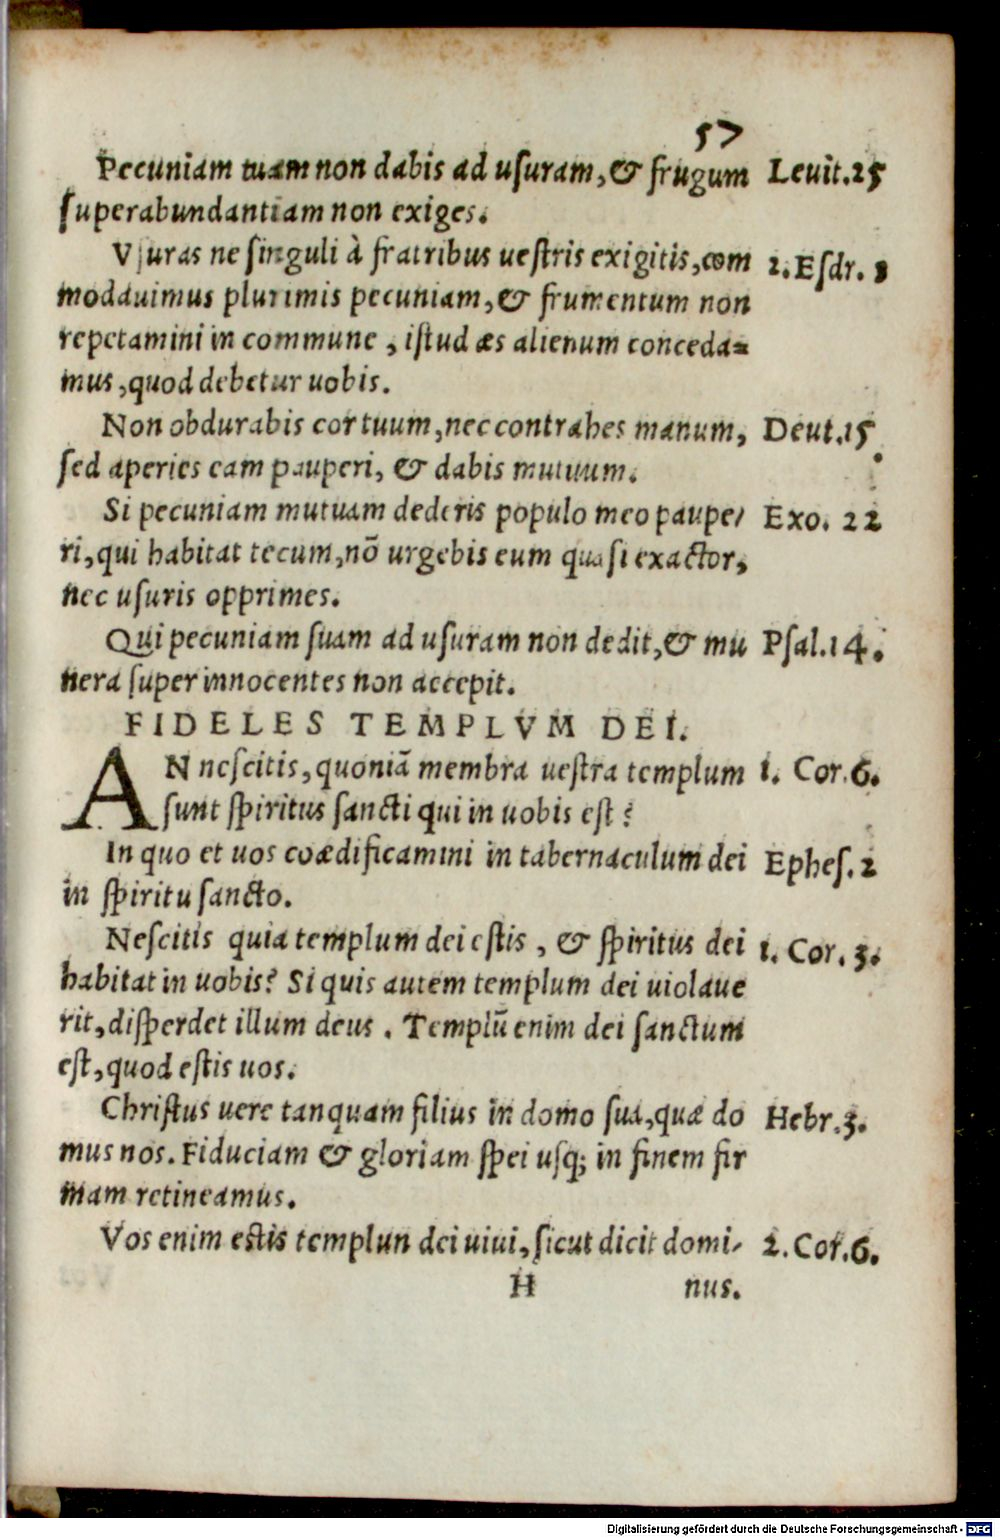 57
Pecuniam tuam non dabis ad uſuram, & frugum Leuit.25
ſuperabundantiam non exiges.
Vſuras ne ſinguli à fratribus ueſtris exigitis, com 2. Eſdr.
modauimus plurimis pecuniam, & frumentum non
repetamini in commune, iſtud æs alienum conceda=
mus, quod debetur uobis.
Non obdurabis cor tuum, nec contrahes manum, Deut.15
ſed aperies eam pauperi, & dabis mutuum.
Si pecuniam mutuam dederis populo meo paupe/ Exo. 22
ri, qui habitat tecum, nō urgebis eum quaſi exactor,
nec uſuris opprimes.
Qui pecuniam ſuam ad uſuram non dedit, & mu Pſal.14.
nera ſuper innocentes non accepit.
FIDELES TEMPLVM DEI.
AN neſcitis, quoniā membra ueſtra templum 1. Cor.6.
ſunt ſpiritus ſancti qui in uobis eſt?
In quo et uos coædificamini in tabernaculum dei Epheſ.2
in ſpiritu ſancto.
Neſcitis quia templum dei eſtis, & ſpiritus dei 1. Cor. 3.
habitat in uobis? Si quis autem templum dei uiolaue
rit, diſperdet illum deus. Templū enim dei ſanctum
eſt, quod eſtis uos.
Chriſtus uere tanquam filius in domo ſua, quæ do Hebr.3.
mus nos. Fiduciam & gloriam ſpei uſq; in finem fir
mam retineamus.
Vos enim eſtis templun dei uiui, ſicut dicit domi/ 2. Cor.6.
H nus.
Digitalisierung gefördert durch die Deutsche Forschungsgemeinschaft - DFG